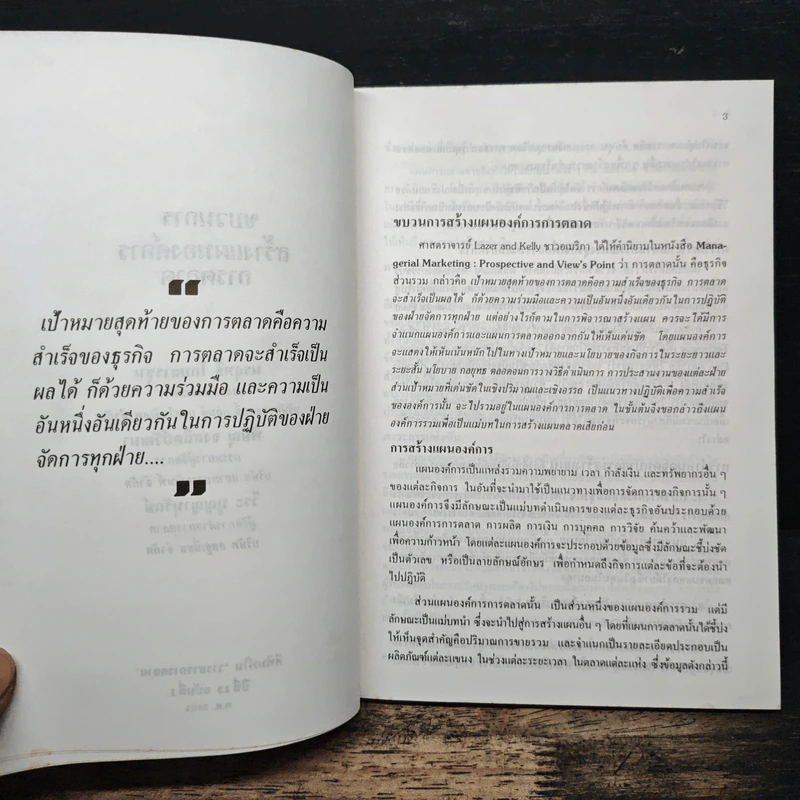 "
เป้าหมายสุดท้ายของการตลาดคือความ
สำเร็จของธุรกิจ การตลาดจะสำเร็จเป็น
ผลได้ ก็ด้วยความร่วมมือ และความเป็น
อันหนึ่งอันเดียวกันในการปฏิบัติของฝ่าย
จัดการทุกฝ่าย....
"
3
ขบวนการสร้างแผนองค์การการตลาด
ศาสตราจารย์ Lazer and Kelly ชาวอเมริกา ได้ให้คำนิยามในหนังสือ Mana-
gerial Marketing : Prospective and View's Point ว่า การตลาดนั้น คือธุรกิจ
ส่วนรวม กล่าวคือ เป้าหมายสุดท้ายของการตลาดคือความสำเร็จของธุรกิจ การตลาด
จะสำเร็จเป็นผลได้ ก็ด้วยความร่วมมือและความเป็นอันหนึ่งอันเดียวกันในการปฏิบัติ
ของฝ่ายจัดการทุกฝ่าย แต่อย่างไรก็ตามในการพิจารณาสร้างแผน ควรจะได้มีการ
จำแนกแผนองค์การและแผนการตลาดออกจากกันให้เห็นเด่นชัด โดยแผนองค์การ
จะแสดงให้เห็นเน้นหนักไปในทางเป้าหมายและนโยบายของกิจการในระยะยาวและ
ระยะสั้น นโยบาย กลยุทธ ตลอดจนการวางวิธีดำเนินการ การประสานงานของแต่ละฝ่าย
ส่วนเป้าหมายที่เด่นชัดในเชิงปริมาณและเชิงอรรถ เป็นแนวทางปฏิบัติเพื่อความสำเร็จ
ขององค์การนั้น จะไปรวมอยู่ในแผนองค์การการตลาด ในขั้นต้นจึงขอกล่าวถึงแผน
องค์การรวมเพื่อเป็นแม่บทในการสร้างแผนตลาดเสียก่อน
การสร้างแผนองค์การ
แผนองค์การเป็นแหล่งรวมความพยายาม เวลา กำลังเงิน และทรัพยากรอื่น ๆ
ของแต่ละกิจการ ในอันที่จะนำมาใช้เป็นแนวทางเพื่อการจัดการของกิจการนั้น ๆ
แผนองค์การจึงมีลักษณะเป็นแม่บทดำเนินการของแต่ละธุรกิจอันประกอบด้วย
แผนองค์การการตลาด การผลิต การเงิน การบุคคล การวิจัย ค้นคว้าและพัฒนา
เพื่อความก้าวหน้า โดยแต่ละแผนองค์การจะประกอบด้วยข้อมูลซึ่งมีลักษณะชี้บ่งชัด
เป็นตัวเลข หรือเป็นลายลักษณ์อักษร เพื่อกำหนดถึงกิจการแต่ละข้อที่จะต้องนำ
ไปปฏิบัติ
ส่วนแผนองค์การการตลาดนั้น เป็นส่วนหนึ่งของแผนองค์การรวม แต่มี
ลักษณะเป็นแม่บทนำ ซึ่งจะนำไปสู่การสร้างแผนอื่น ๆ โดยที่แผนการตลาดนั้นได้ชี้บ่ง
ให้เห็นจุดสำคัญคือปริมาณการขายรวม และจำแนกเป็นรายละเอียดประกอบเป็น
ผลิตภัณฑ์แต่ละแขนง ในช่วงแต่ละระยะเวลา ในตลาดแต่ละแห่ง ซึ่งข้อมูลดังกล่าวนี้